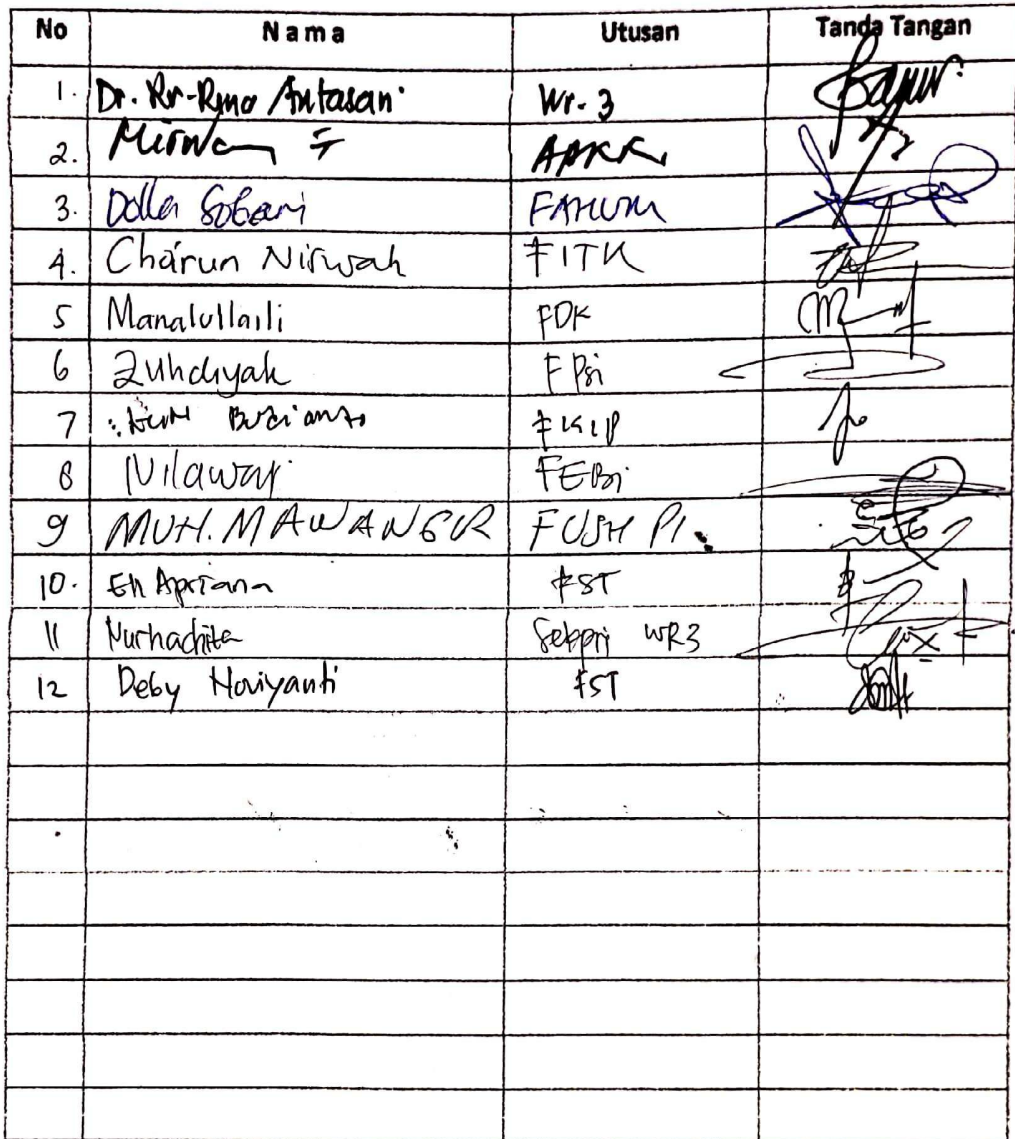 No Nama Utusan Tanda Tangan
1. Dr. Rr-Rina Antasari Wr. 3
2. Mirwan F APKK
3. Dolla Sobari FAHUM
4. Chairun Nirwah FITK
5 Manalullaili FDK
6 Zuhdiyah F Psi
7 Budianto FKIP
8 Nilawati FEBi
9 MUH. MAWANGIR FUSHPI.
10. Eli Apriana FST
11 Nurhachita Sekpri WR3
12 Deby Noviyanti FST